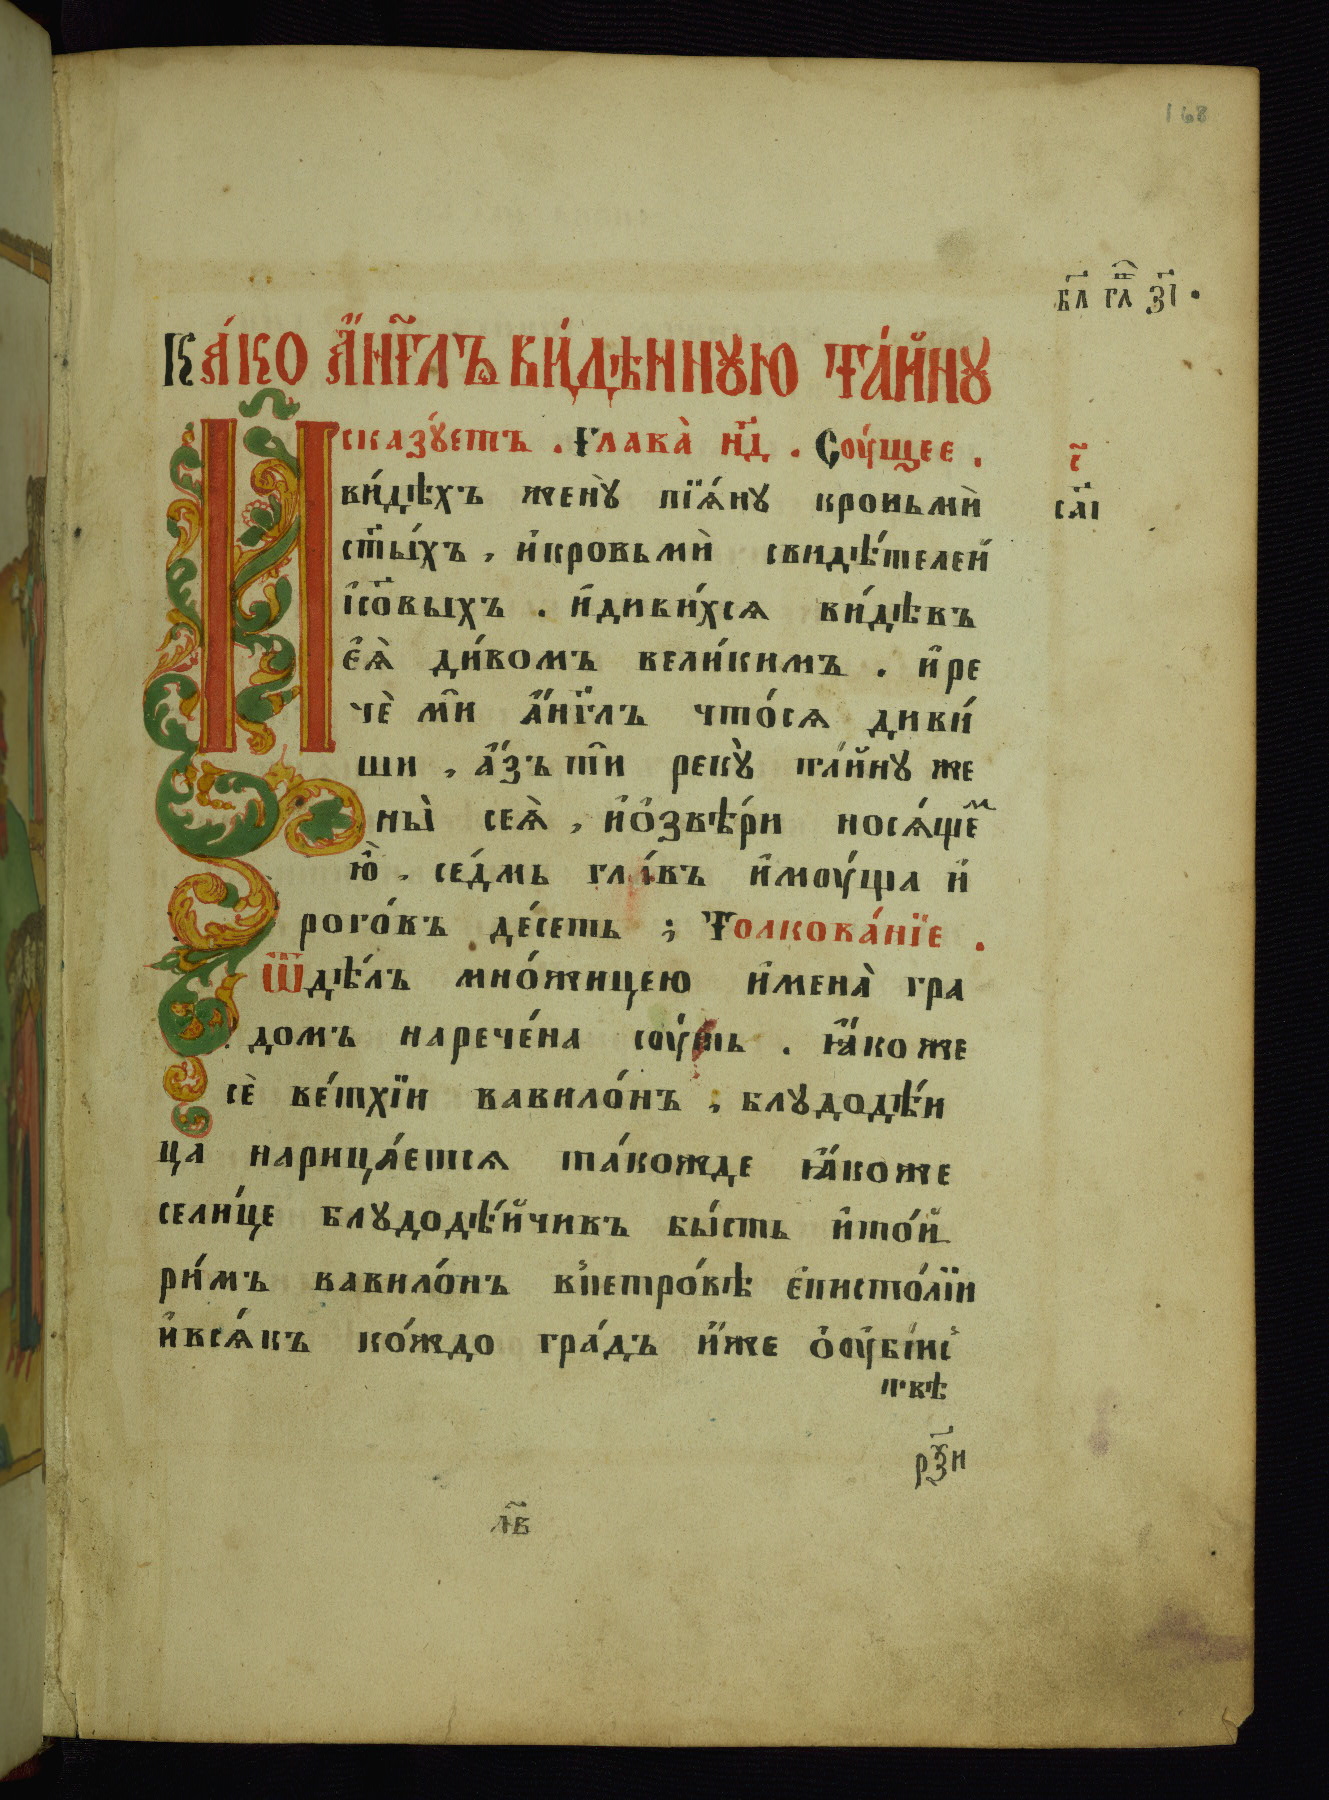 168
в҃л гл҃ з҃і .
Ка́ко а҆́нг҃лъ ви́дѣнную та́йну
сказꙋ́етъ . Глава̀ н҃д . Соу́щее .
с҃
са҃і
И ви́дѣхъ женꙋ̀ пїѧ́ну кровьмѝ
ст҃ы́хъ , и҆кровьмѝ свидѣ́телей
і҆с҃овыхъ . и҆диви́хсѧ ви́дѣвъ
еѧ̀ ди́вомъ вели́кимъ . и҆ре
чѐ ми а҆́нг҃лъ что́сѧ диви́
ши , а҆́зъ ти рекꙋ̀ та́йнꙋ же
ны̀ сеѧ̀ , и҆ѻ҆звѣ́ри носѧ́щем
ю҆̀ . се́дмь гла́въ и҆моу́ща и҆
рого́въ де́сеть ; Толкова́нїе .
Ѿдѣ́лъ мно́жицею и҆мена̀ гра
домъ нарече́на соу́ть . ꙗ҆́коже
сѐ ве́тхїи вавило́нъ , блꙋдодѣ́и
ца нарица́етсѧ та́кожде ꙗ҆́коже
сели́це блꙋдодѣ́йчивъ бы́сть и҆то́й
ри́мъ вавило́нъ в̾петро́вѣ є҆писто́лїи
и҆всѧ́къ ко́ждо гра́дъ и҆́же ѻ҆оу҆бі́ис
твѣ
рꙋ҃зи
л҃в